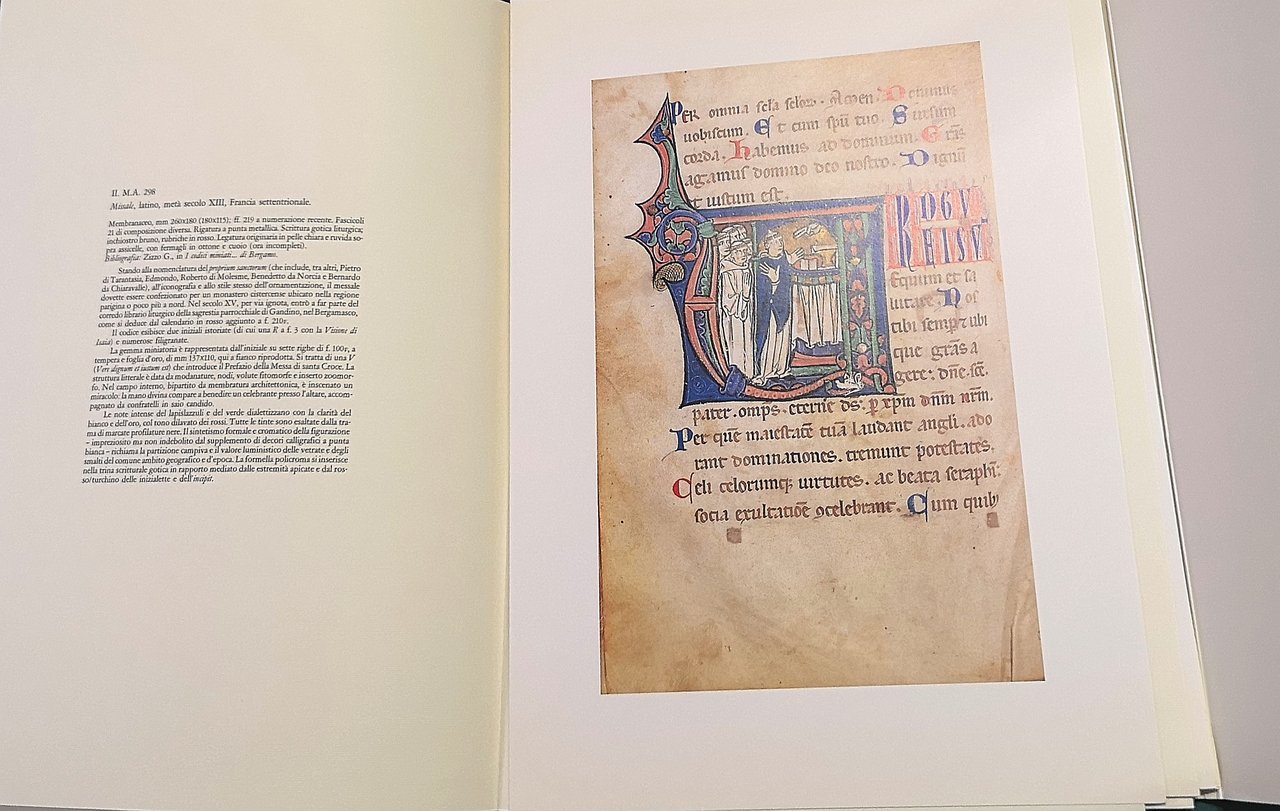 II. M.A. 298
Missale, latino, metà secolo XIII, Francia settentrionale.
Membranaceo, mm 260x180 (180x115); ff. 219 a numerazione recente. Fascicoli
21 di composizione diversa. Rigatura a punta metallica. Scrittura gotica liturgica;
inchiostro bruno, rubriche in rosso. Legatura originaria in pelle chiara e ruvida so-
pra assicelle, con fermagli in ottone e cuoio (ora incompleti).
Bibliografia: Zizzo G., in I codici miniati... di Bergamo.
Stando alla nomenclatura del proprium sanctorum (che include, tra altri, Pietro
di Tarantasia, Edmondo, Roberto di Molesme, Benedetto da Norcia e Bernardo
da Chiaravalle), all'iconografia e allo stile stesso dell'ornamentazione, il messale
dovette essere confezionato per un monastero cistercense ubicato nella regione
parigina o poco più a nord. Nel secolo XV, per via ignota, entrò a far parte del
corredo librario liturgico della sagrestia parrocchiale di Gandino, nel Bergamasco,
come si deduce dal calendario in rosso aggiunto a f. 210r.
Il codice esibisce due iniziali istoriate (di cui una R a f. 3 con la Visione di
Isaia) e numerose filigranate.
La gemma miniatoria è rappresentata dall'iniziale su sette righe di f. 100r, a
tempera e foglia d'oro, di mm 137x110, qui a fianco riprodotta. Si tratta di una V
(Vere dignum et iustum est) che introduce il Prefazio della Messa di santa Croce. La
struttura litterale è data da modanature, nodi, volute fitomorfe e inserto zoomor-
fo. Nel campo interno, bipartito da membratura architettonica, è inscenato un
miracolo: la mano divina compare a benedire un celebrante presso l'altare, accom-
pagnato da confratelli in saio candido.
Le note intense del lapislazzuli e del verde dialettizzano con la clarità del
bianco e dell'oro, col tono dilavato dei rossi. Tutte le tinte sono esaltate dalla tra-
ma di marcate profilature nere. Il sintetismo formale e cromatico della figurazione
– impreziosito ma non indebolito dal supplemento di decori calligrafici a punta
bianca – richiama la partizione campiva e il valore luministico delle vetrate e degli
smalti del comune ambito geografico e d'epoca. La formella policroma si inserisce
nella trina scritturale gotica in rapporto mediato dalle estremità apicate e dal ros-
so/turchino delle inizialette e dell'incipit.
PER omnia scła sclow. Amen. Dominus
uobiscum. Et cum spū tuo. Sursum
corda. Habemus ad dominum. Grās
agamus domino deo nostro. Dignū
et iustum est.
Equum et sa
lutare. Nos
tibi semper ubi
que grās a
gere. dn̄e sc̄e.
pater. omps. eterne ds. p̱ xp̄m dn̄m nr̄m.
Per quē maiestatē tuā laudant angli. ado
rant dominationes. tremunt potestates.
Celi celorumq; uirtutes. ac beata seraphī.
socia exultatiōe ꝯcelebrant. Cum quib;